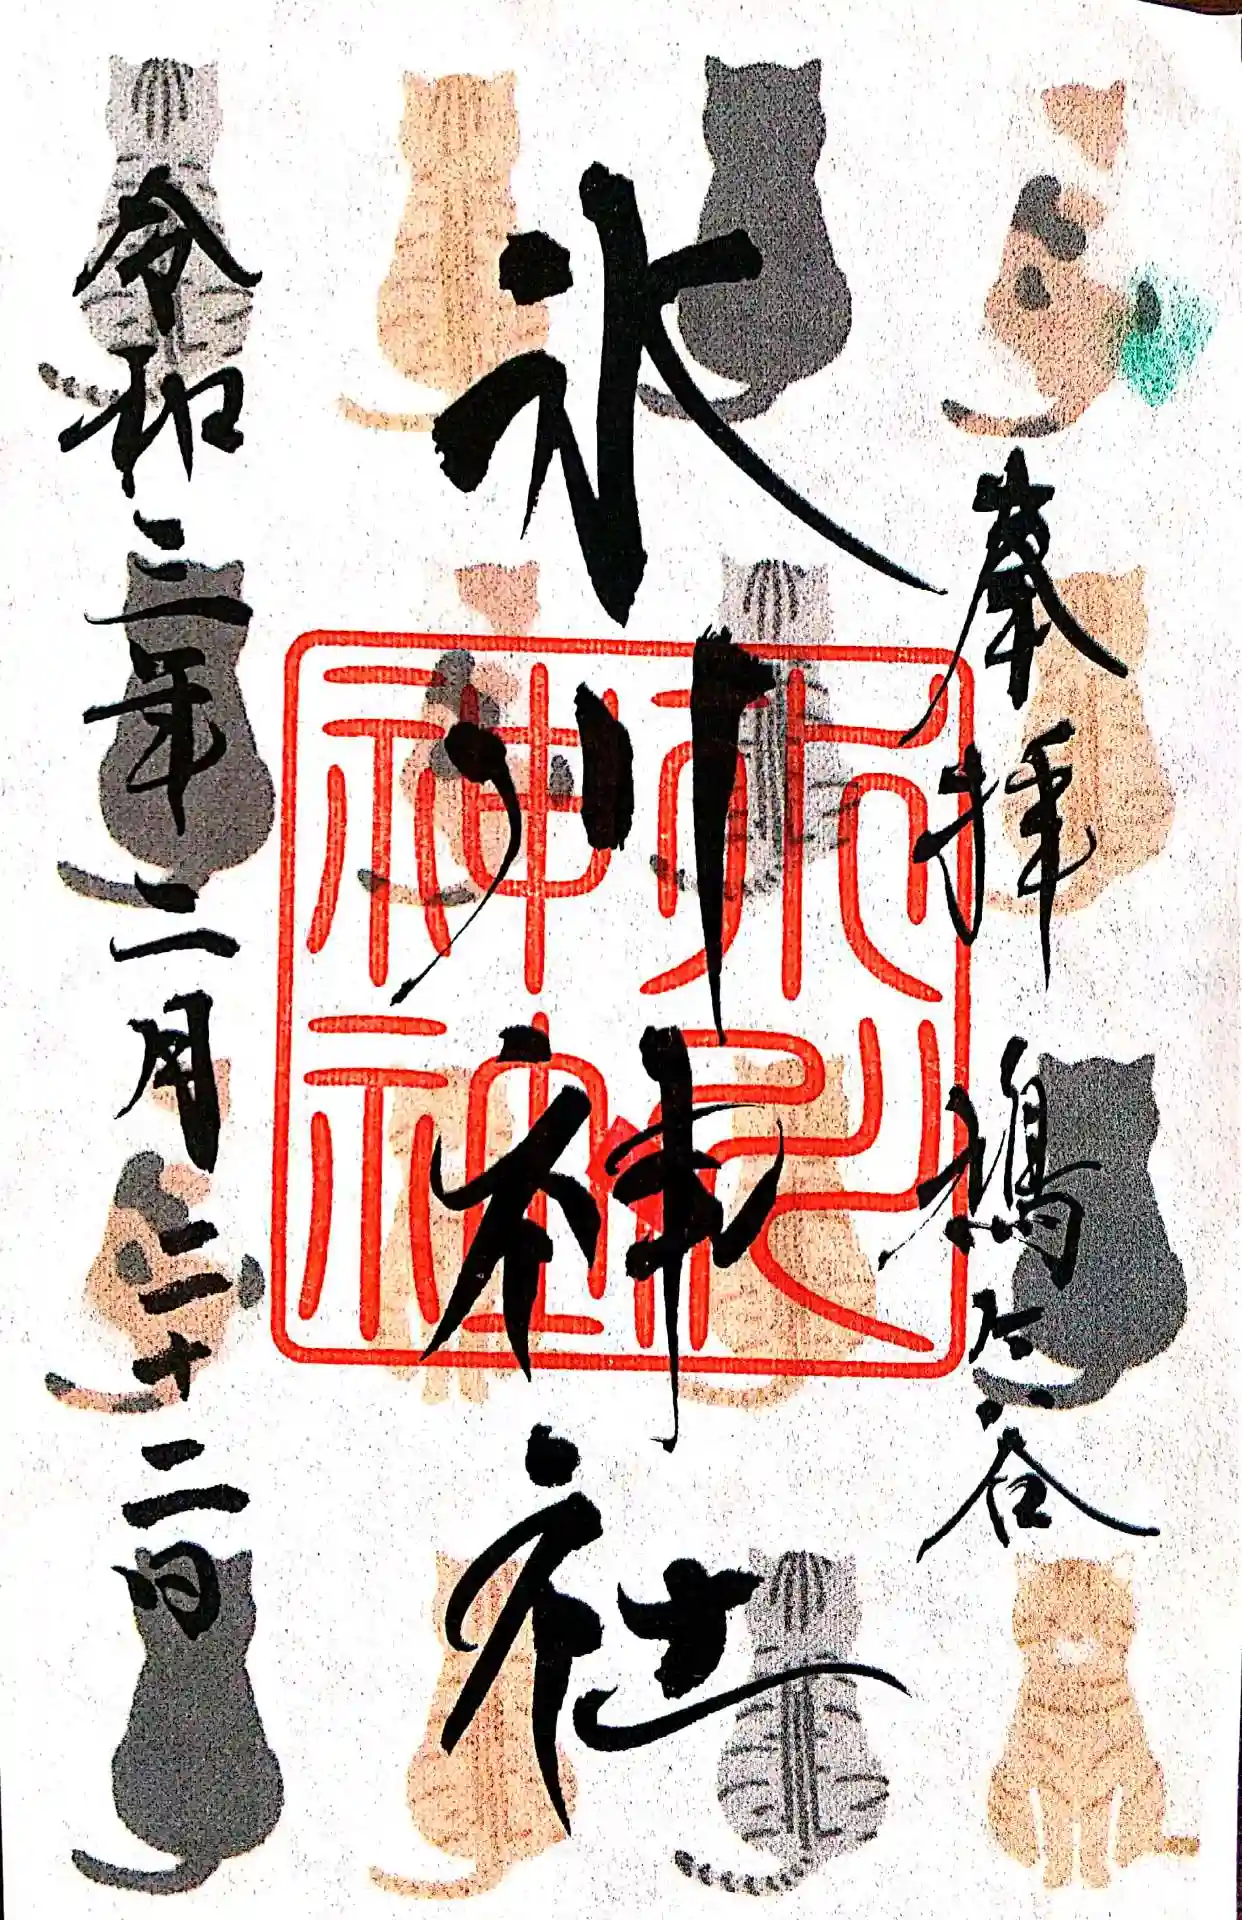 奉拝 鳩ヶ谷
氷川神社
氷川神社
令和三年二月二十二日